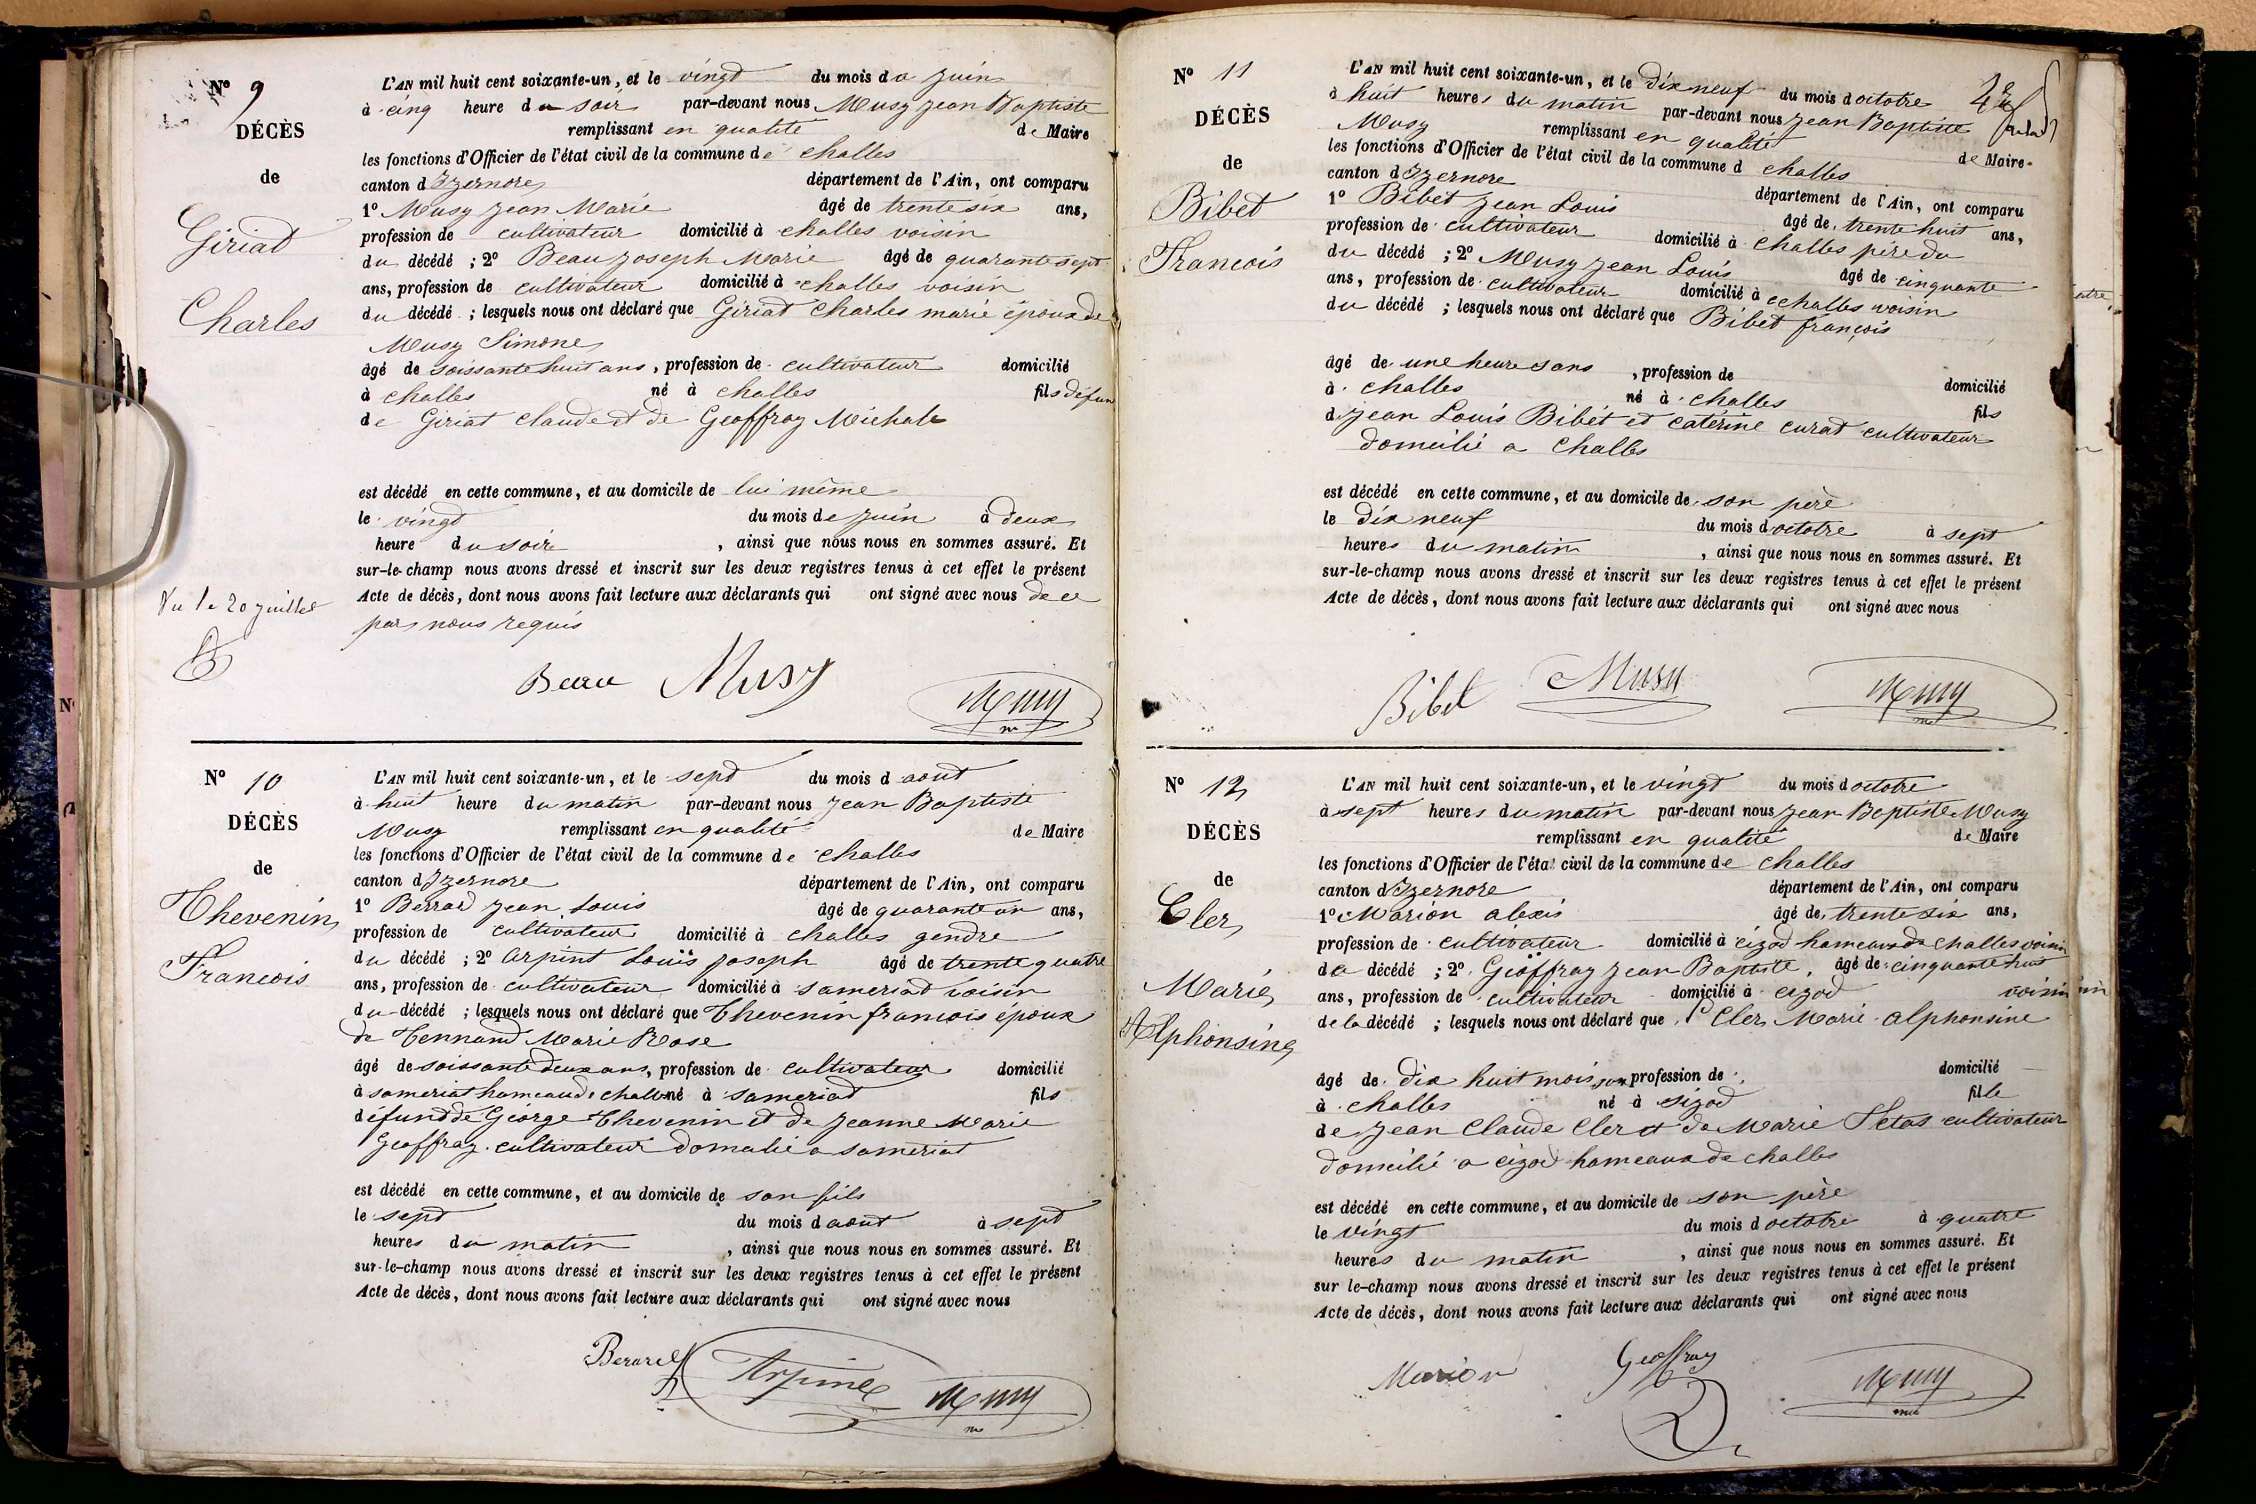 Nº 9
DÉCÈS
de
Giriat
Charles
Vu le 20 juillet
L'AN mil huit cent soixante-un, et le vingt du mois de juin
à cinq heure du soir par-devant nous Musy jean Baptiste
remplissant en qualité de Maire
les fonctions d'Officier de l'état civil de la commune de challes
canton d Izernore département de l'Ain, ont comparu
1º Musy jean Marie âgé de trente six ans,
profession de cultivateur domicilié à challes voisin
du décédé ; 2º Beau joseph Marie âgé de quarante sept
ans, profession de cultivateur domicilié à challes voisin
du décédé ; lesquels nous ont déclaré que Giriat Charles marié époux de
Musy Simone
âgé de soissante huit ans, profession de cultivateur domicilié
à challes né à challes fils défun
de Giriat claude et de Geoffray Michale
est décédé en cette commune, et au domicile de lui même
le vingt du mois de juin à deux
heure du soir, ainsi que nous nous en sommes assuré. Et
sur-le-champ nous avons dressé et inscrit sur les deux registres tenus à cet effet le présent
Acte de décès, dont nous avons fait lecture aux déclarants qui ont signé avec nous de ce
par nous requis
Beau Musy Musy
Nº 10
DÉCÈS
de
Thevenin
Francois
L'AN mil huit cent soixante-un, et le sept du mois d aout
à huit heure du matin par-devant nous jean Baptiste
Musy remplissant en qualité de Maire
les fonctions d'Officier de l'état civil de la commune de challes
canton d Izernore département de l'Ain, ont comparu
1º Berrad jean Louis âgé de quarante un ans,
profession de cultivateur domicilié à challes gendre
du décédé ; 2º arpint Louis joseph âgé de trente quatre
ans, profession de cultivateur domicilié à sameriat voisin
du décédé ; lesquels nous ont déclaré que Thevenin francois époux
de Tennand Marie Rose
âgé de soissante deux ans, profession de cultivateur domicilié
à sameriat hameau de challes né à sameriat fils
défunt de George Thevenin et de jeanne Marie
Geoffray cultivateur a sameriat
est décédé en cette commune, et au domicile de son fils
le sept du mois d aout à sept
heures du matin, ainsi que nous nous en sommes assuré. Et
sur-le-champ nous avons dressé et inscrit sur les deux registres tenus à cet effet le présent
Acte de décès, dont nous avons fait lecture aux déclarants qui ont signé avec nous
Berard Arpine Musy
Nº 11
DÉCÈS
de
Bibet
Francois
L'AN mil huit cent soixante-un, et le dix neuf du mois d octobre
à huit heures du matin par-devant nous jean Baptiste
Musy remplissant en qualité de Maire
les fonctions d'Officier de l'état civil de la commune d challes
canton d Izernore département de l'Ain, ont comparu
1º Bibet jean Louis âgé de trente huit ans,
profession de cultivateur domicilié à challes père du
du décédé ; 2º Musy jean Louis âgé de cinquante
ans, profession de cultivateur domicilié à challes voisin
du décédé ; lesquels nous ont déclaré que Bibet françois
âgé de une heure sans, profession de domicilié
à challes né à challes fils
d jean Louis Bibet et catérine curat cultivateur
domcilié a challes
est décédé en cette commune, et au domicile de son père
le dix neuf du mois d octobre à sept
heures du matin, ainsi que nous nous en sommes assuré. Et
sur-le-champ nous avons dressé et inscrit sur les deux registres tenus à cet effet le présent
Acte de décès, dont nous avons fait lecture aux déclarants qui ont signé avec nous
Bibet Musy Musy
Nº 12
DÉCÈS
de
Cler
Marie
Alphonsine
L'AN mil huit cent soixante-un, et le vingt du mois d octobre
à sept heures du matin par-devant nous jean Baptiste Musy
remplissant en qualité de Maire
les fonctions d'Officier de l'état civil de la commune de challes
canton d Izernore département de l'Ain, ont comparu
1º Marion alexis âgé de trente six ans,
profession de cultivateur domicilié à cizod hameaux de challes voisin
de décédé ; 2º Geoffray jean Baptiste, âgé de cinquante huit
ans, profession de cultivateur domicilié à cizod voisin
de la décédé ; lesquels nous ont déclaré que Cler Marie alphonsine
âgé de dix huit mois san profession de domicilié
à challes né à sizod fille
de jean Claude Cler et de Marie cultivateur
domcilié a cizod hameaux de challes
est décédé en cette commune, et au domicile de son père
le vingt du mois d octobre à quatre
heures du matin, ainsi que nous nous en sommes assuré. Et
sur le-champ nous avons dressé et inscrit sur les deux registres tenus à cet effet le présent
Acte de décès, dont nous avons fait lecture aux déclarants qui ont signé avec nous
Marion Geoffray Musy